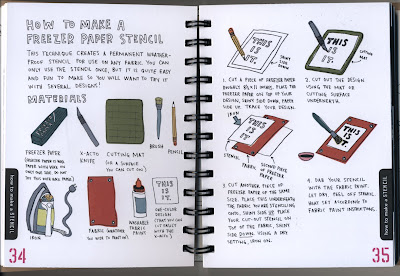 HOW TO MAKE A
FREEZER PAPER STENCIL
THIS TECHNIQUE CREATES A PERMANENT WEATHER-
PROOF STENCIL FOR USE ON ANY FABRIC. YOU CAN
ONLY USE THE STENCIL ONCE, BUT IT IS QUITE EASY
AND FUN TO MAKE SO YOU WILL WANT TO TRY IT
WITH SEVERAL DESIGNS!
MATERIALS
FREEZER PAPER
X-ACTO
KNIFE
CUTTING MAT
(OR A SURFACE
YOU CAN CUT ON)
BRUSH
PENCIL
IRON
FABRIC (WHATEVER
YOU WANT TO PRINT ON)
WASHABLE
FABRIC
PAINT
THIS
IS
IT.
ONE-COLOR
DESIGN
(THAT YOU CAN
CUT EASILY
WITH THE
X-ACTO)
how to make a STENCIL
34
THIS
IS
IT.
SHINY SIDE
DOWN
1. CUT A PIECE OF FREEZER PAPER
ROUGHLY 8½ X 11 INCHES. PLACE THE
FREEZER PAPER ON TOP OF YOUR
DESIGN, SHINY SIDE DOWN, PAPER
SIDE UP. TRACE YOUR DESIGN.
THIS
IS
IT.
CUTTING
MAT
2. CUT OUT THE DESIGN
USING THE MAT OR
CUTTING SURFACE
UNDERNEATH.
IRON
THIS
IS
IT.
STENCIL
FABRIC
SECOND PIECE OF
FREEZER PAPER
3. CUT ANOTHER PIECE OF
FREEZER PAPER OF THE SAME
SIZE. PLACE THIS UNDERNEATH
THE FABRIC YOU ARE STENCILING
ONTO, SHINY SIDE UP. PLACE
YOUR CUT-OUT STENCIL ON
TOP OF THE FABRIC, SHINY
SIDE DOWN. USING A DRY
SETTING, IRON ON.
THIS
IS
IT.
4. DAB YOUR STENCIL
WITH THE FABRIC PAINT.
LET DRY. PEEL OFF STENCIL.
HEAT SET ACCORDING TO
FABRIC PAINT INSTRUCTIONS.
how to make a STENCIL
35